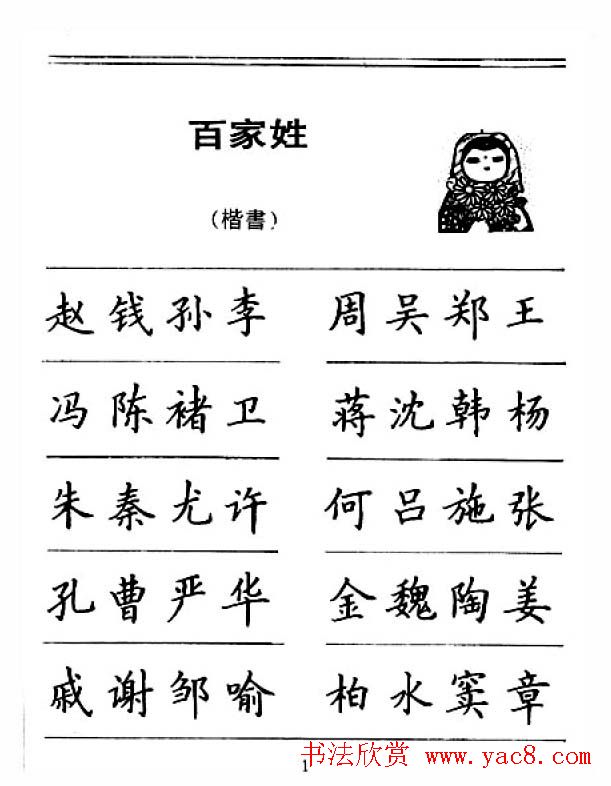 百家姓
(楷書)
赵钱孙李 周吴郑王
冯陈褚卫 蒋沈韩杨
朱秦尤许 何吕施张
孔曹严华 金魏陶姜
戚谢邹喻 柏水窦章
1
书法欣赏 www.yac8.com